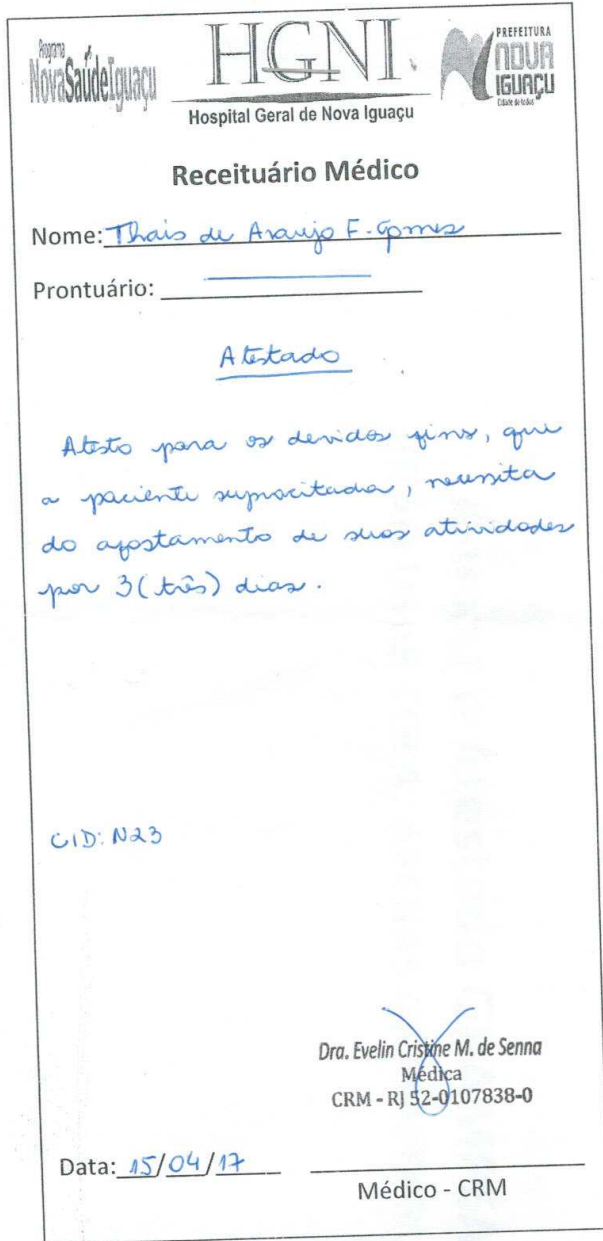 Programa
NovaSaúdeIguaçu
HGNI
Hospital Geral de Nova Iguaçu
PREFEITURA
NOVA
IGUAÇU
Cidade de todos
Receituário Médico
Nome: Thais de Araujo F. Gomes
Prontuário:
Atestado
Atesto para os devidos fins, que
a paciente supracitada, necessita
do afastamento de suas atividades
por 3 (três) dias.
CID: N23
Dra. Evelin Cristine M. de Senna
Médica
CRM - RJ 52-0107838-0
Data: 15/04/17
Médico - CRM